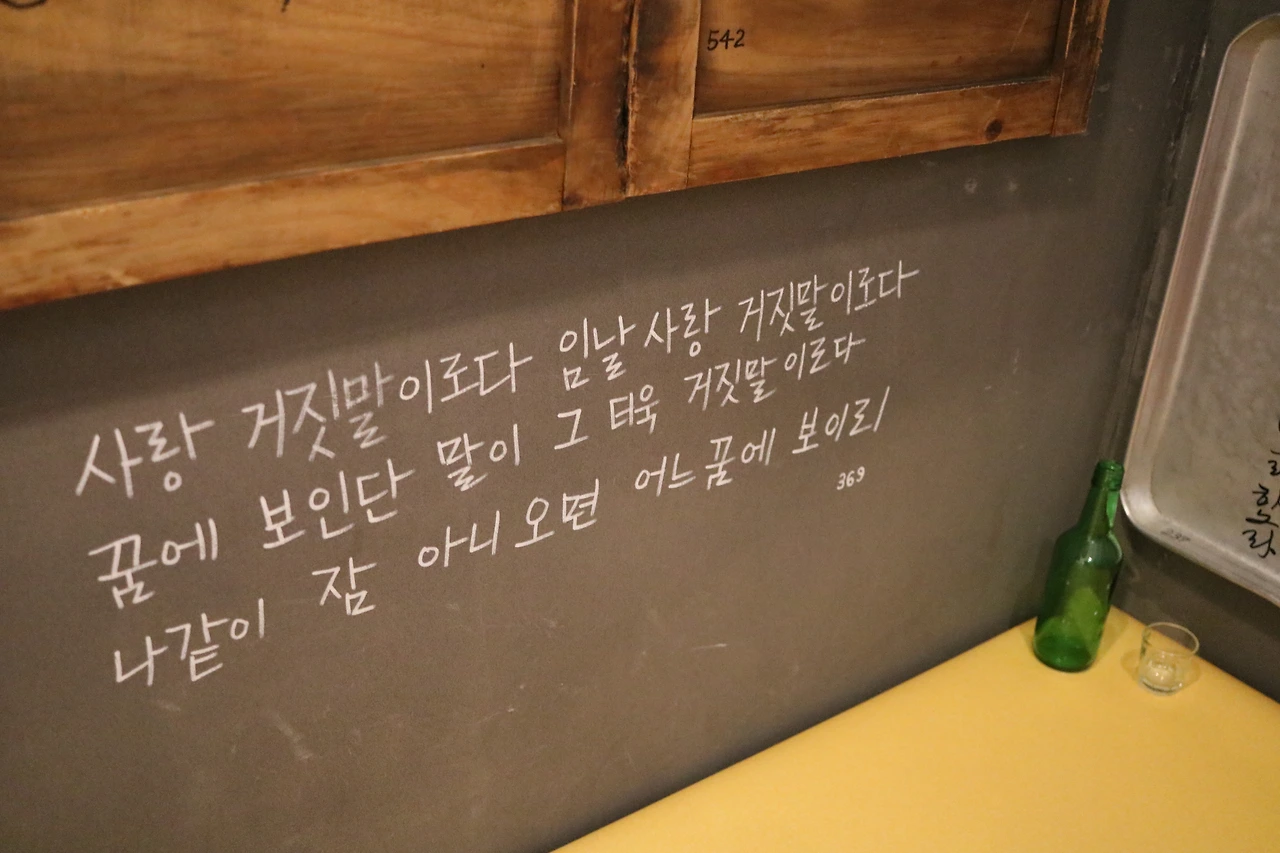 542
사랑 거짓말이로다 임날 사랑 거짓말이로다
꿈에 보인단 말이 그 터욱 거짓말이로다
나같이 잠 아니 오면 어느 꿈에 보이리
369